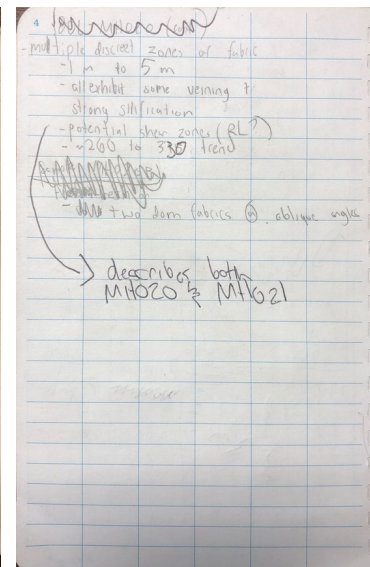 4
- multiple discreet zones of fabric
- 1 m to 5 m
- all exhibit some veining +
strong silification
- potential shear zones (RL?)
- ~260 to 330 trend
- two dom fabrics @ oblique angles
describes both
MH020 & MH021